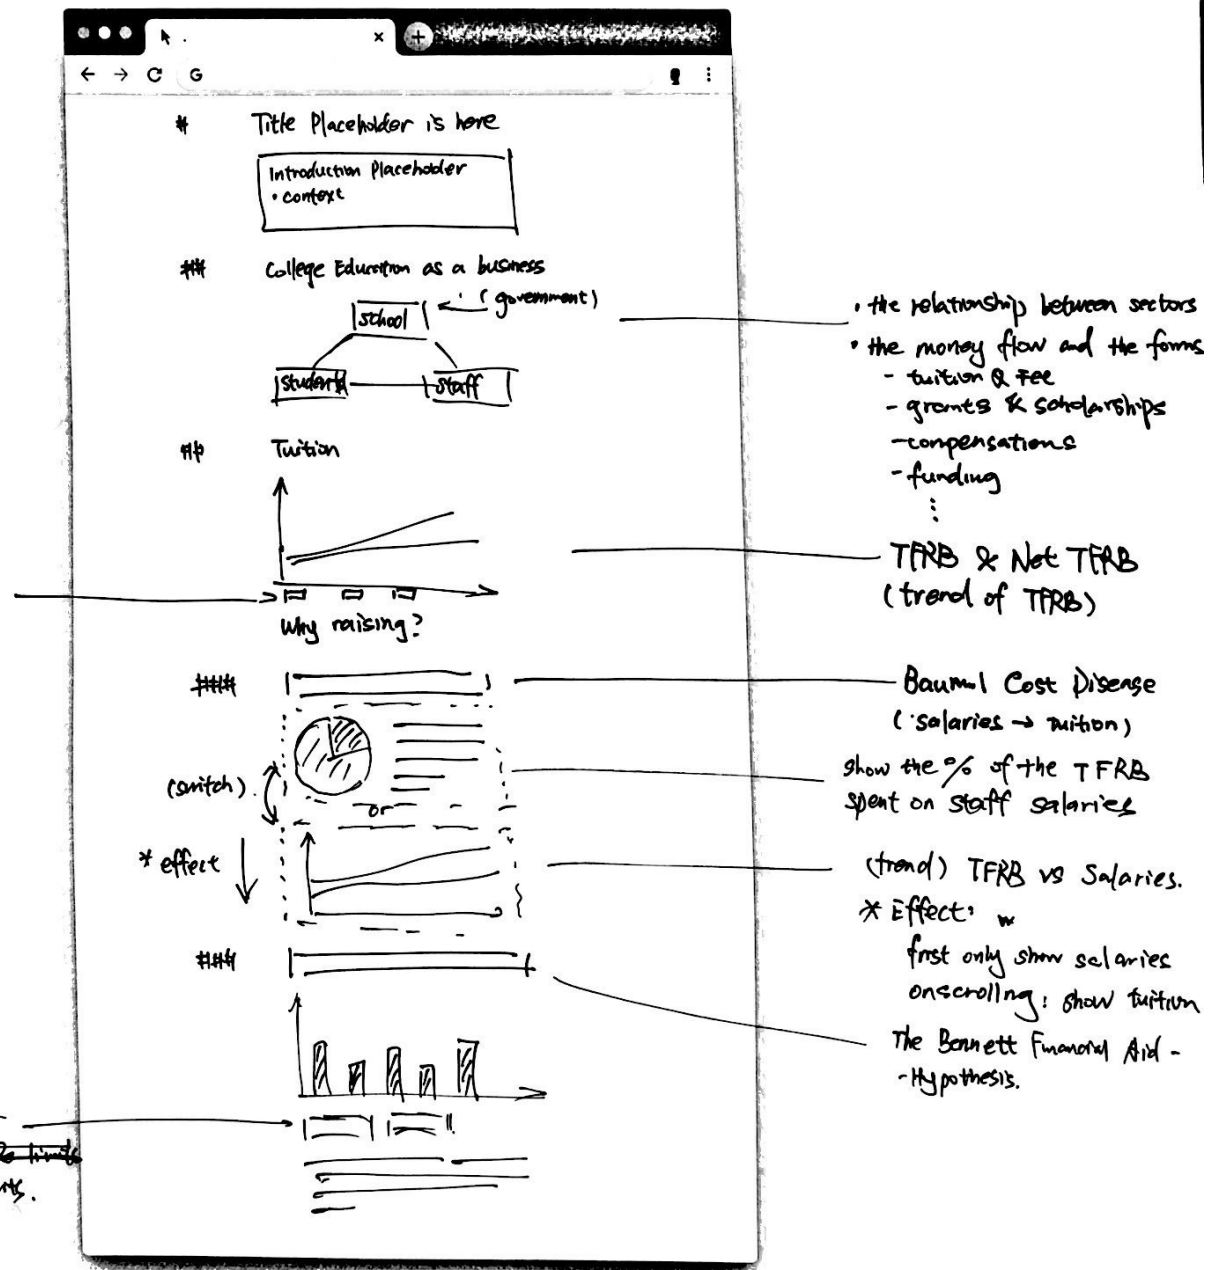 # Title Placeholder is here
Introduction Placeholder
• context
## College Education as a business
school
(government)
student
staff
• the relationship between sectors
• the money flow and the forms
- tuition & Fee
- grants & scholarships
- compensations
- funding
## Tuition
Why raising?
TFRB & Net TFRB
(trend of TFRB)
###
Baumol Cost Disease
(salaries → tuition)
(switch)
or
show the % of the TFRB
spent on staff salaries
* effect
(trend) TFRB vs Salaries.
* Effect:
first only show salaries
onscrolling: show tuition
###
The Bennett Financial Aid -
- Hypothesis.
limits